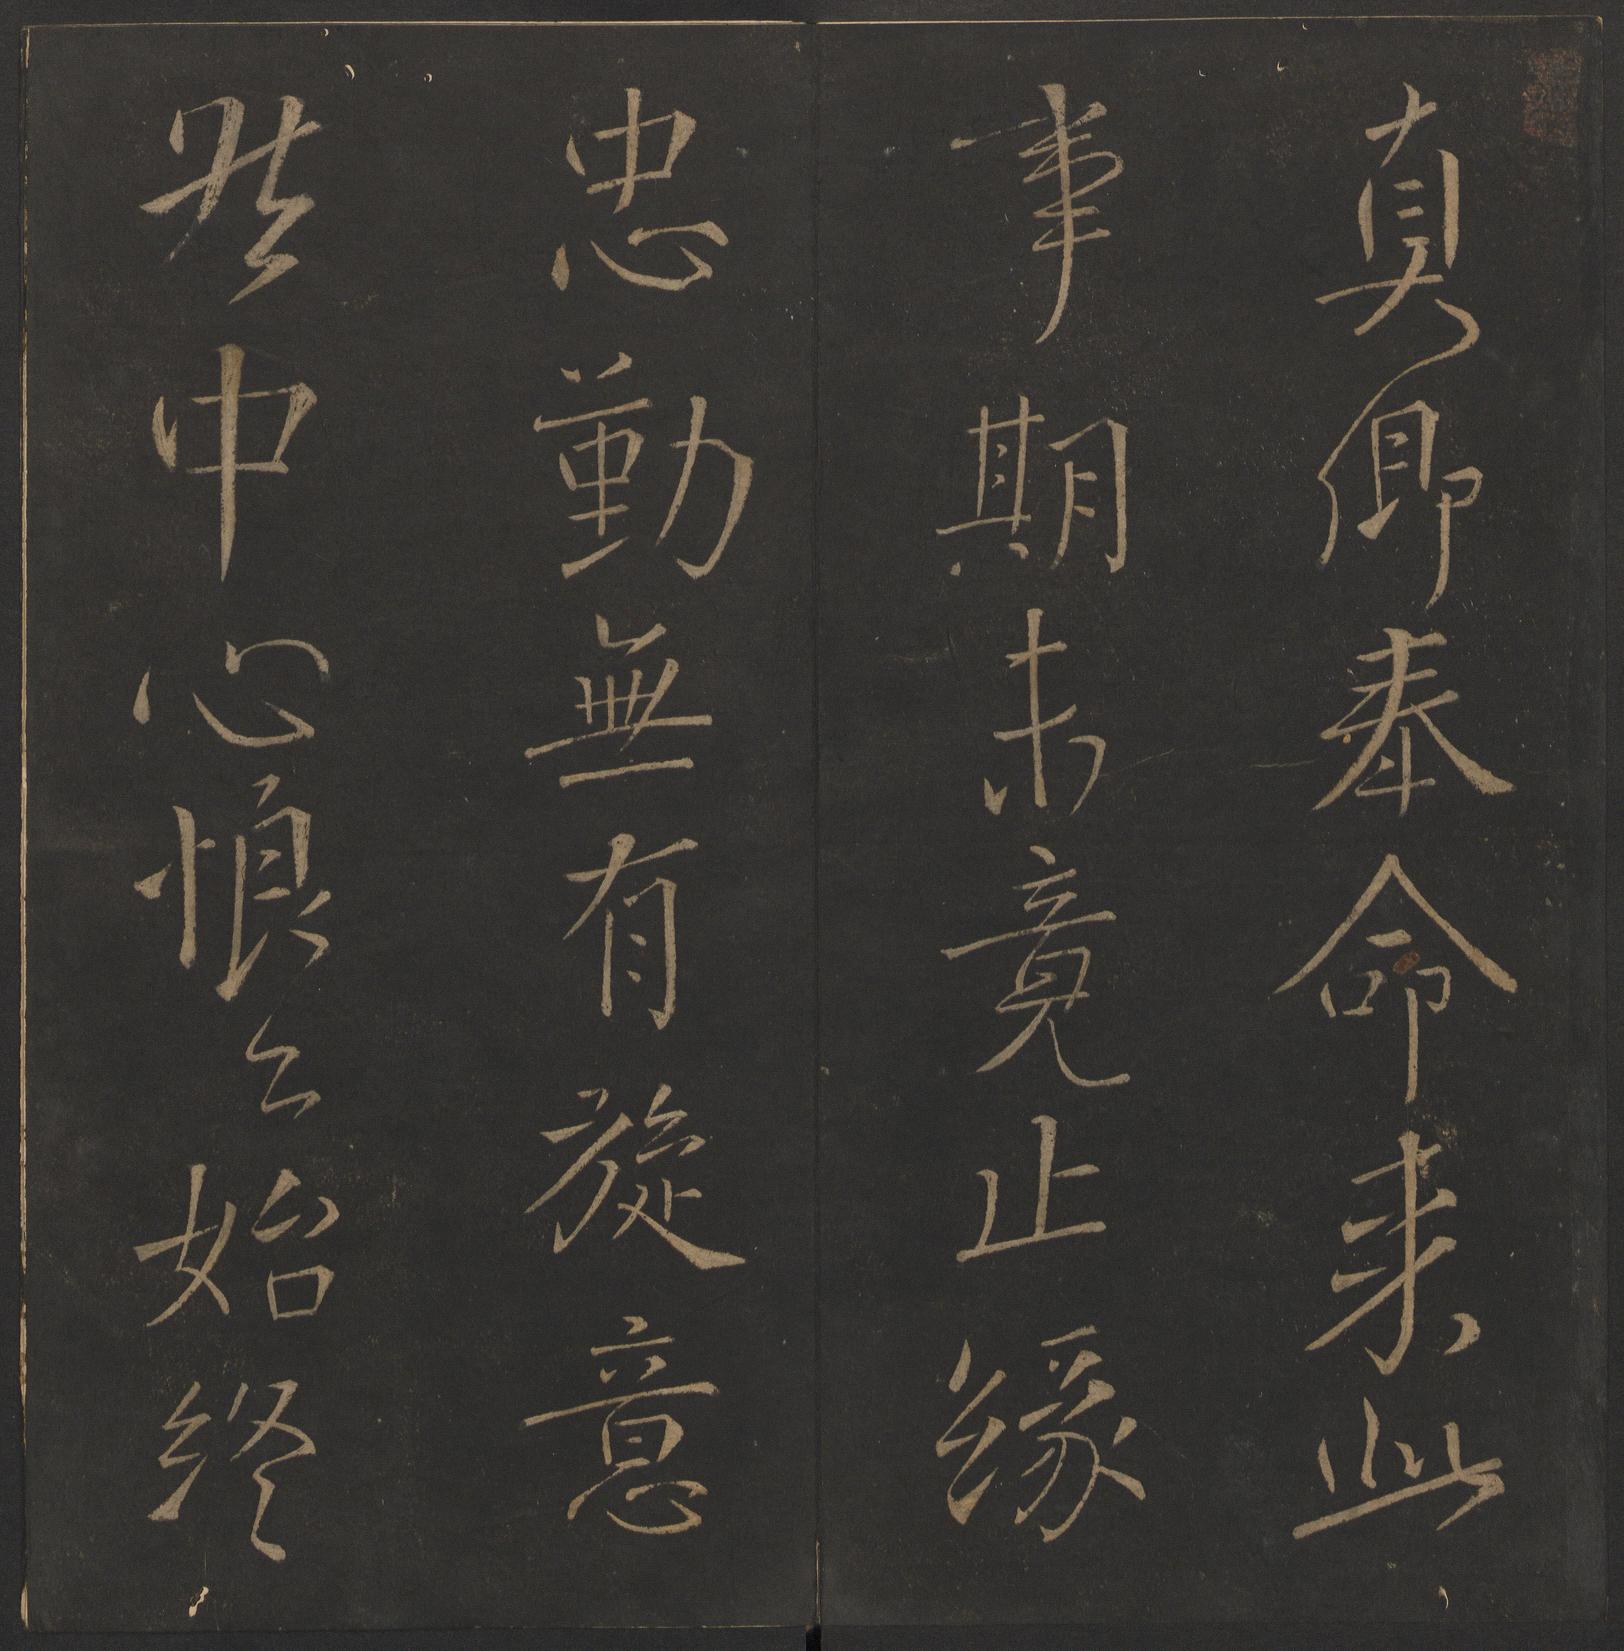 真卿奉命來此
事期未竟止緣
忠勤無有旋意
然中心悢悢始終